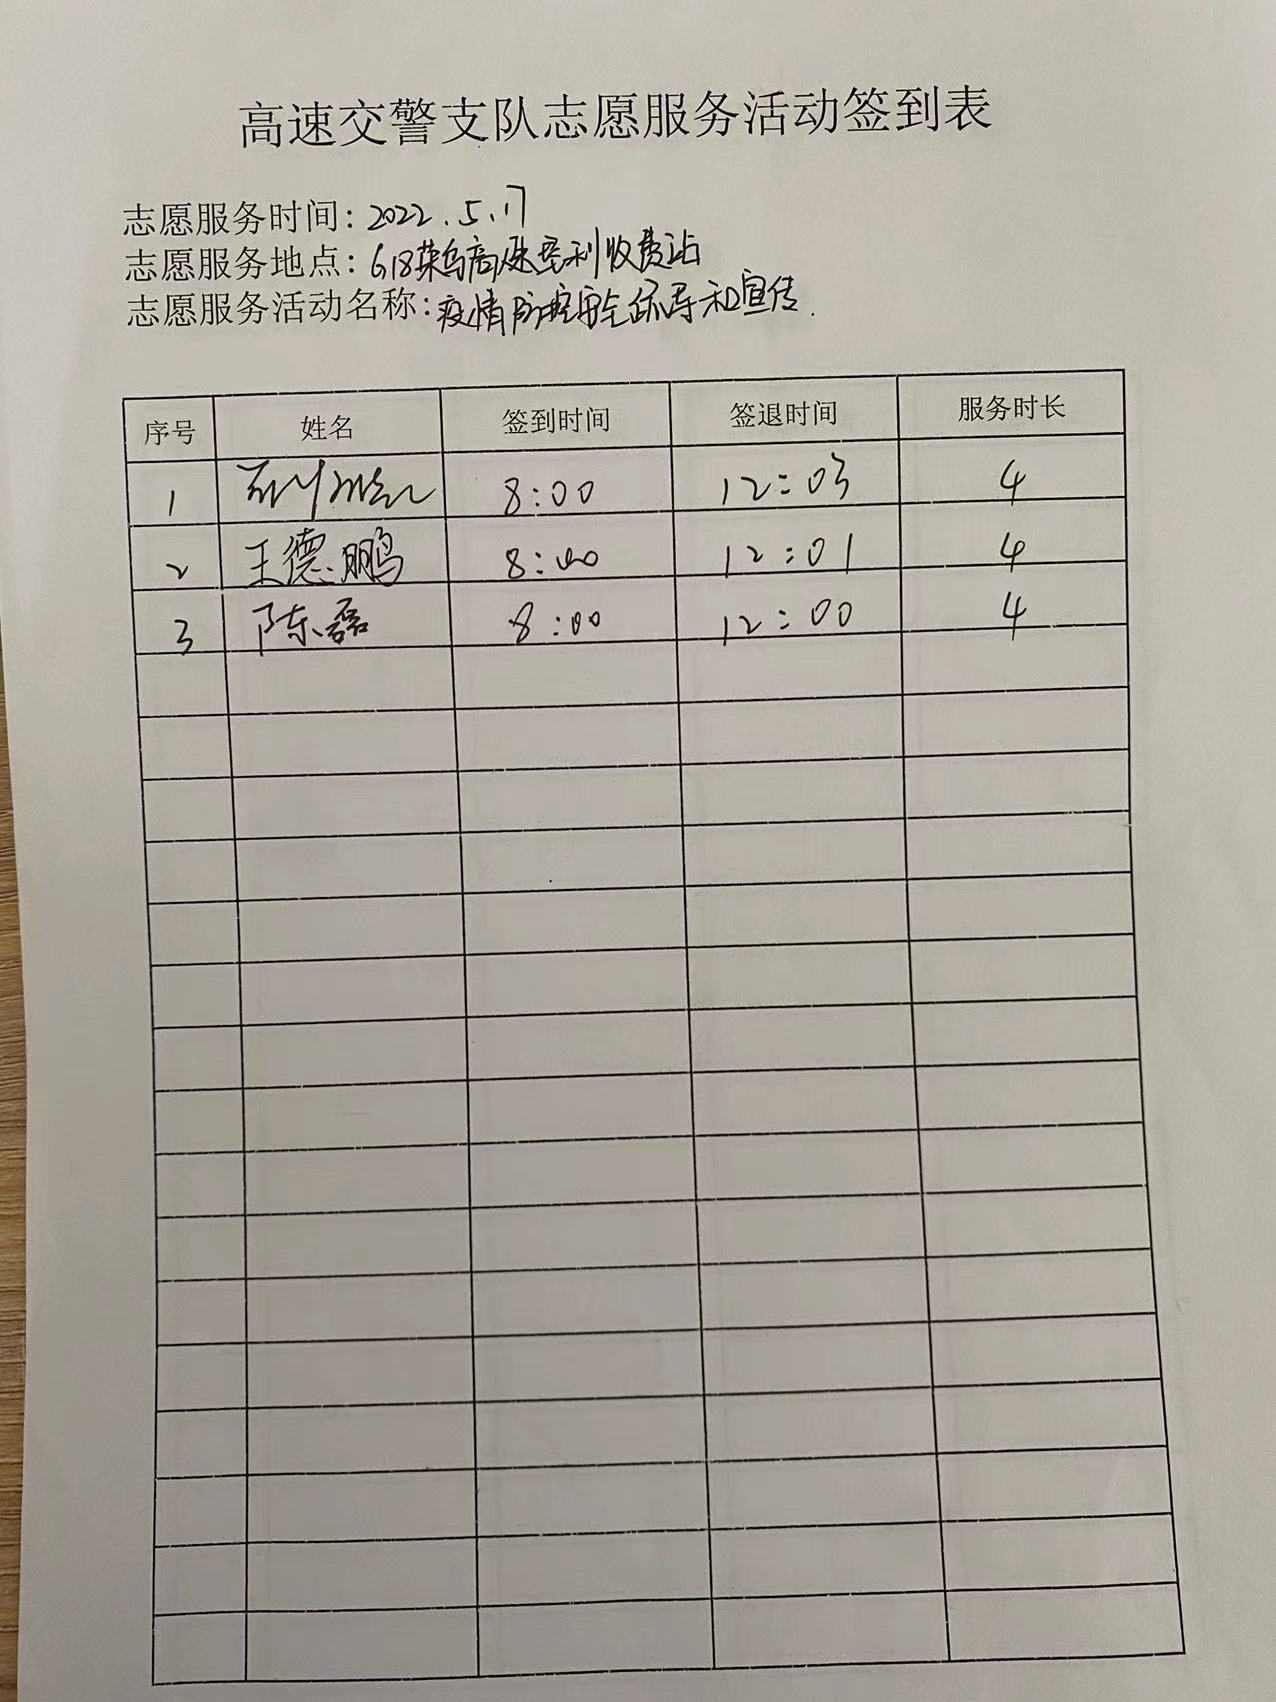 高速交警支队志愿服务活动签到表
志愿服务时间：2022.5.17
志愿服务地点：G18荣乌高速垦利收费站
志愿服务活动名称：疫情防控安全保导和宣传.
序号 姓名 签到时间 签退时间 服务时长
1 8:00 12:03 4
2 王德鹏 8:00 12:01 4
3 陈磊 8:00 12:00 4